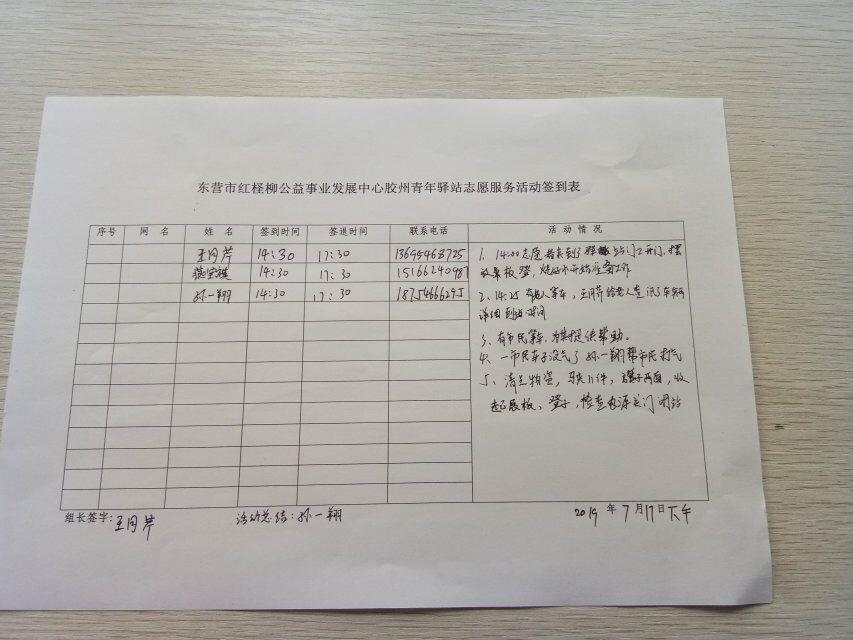 东营市红柽柳公益事业发展中心胶州青年驿站志愿服务活动签到表
序号 网名 姓名 签到时间 签退时间 联系电话 活动情况
王同芹 14:30 17:30 13695468725
14:30 17:30 15166240987
孙一翔 14:30 17:30 18754666295
1、14:00志愿者来到了 站门口开门,摆
放桌板凳,烧好水开始准备工作
2、14:25 有老人等车,王同芹给老人查讯了车辆
详细到站时间
3、有市民等车,为其提供帮助。
4、一市民车子没气了孙一翔帮市民打气
5、清点物资,马夹11件, 子两面,收
起展板、凳子,检查电源关门闭站
组长签字:王同芹 活动总结:孙一翔 2019年7月17日下午